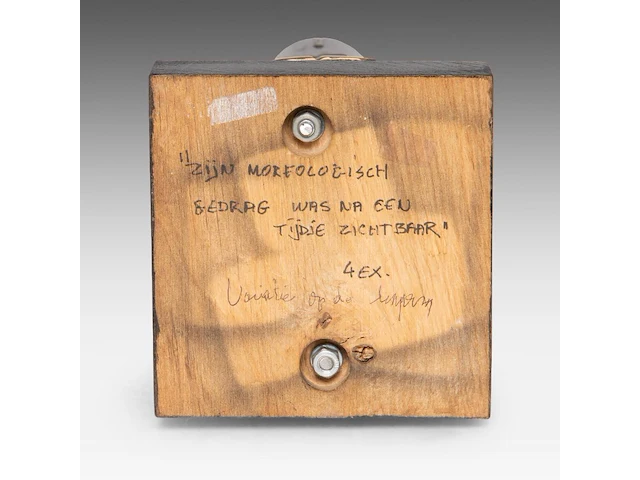 "ZIJN MORFOLOGISCH
GEDRAG WAS NA EEN
TIJDJE ZICHTBAAR"
4 EX.
Variatie op de